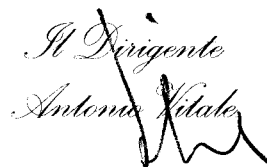 Il Dirigente
Antonio Vitale